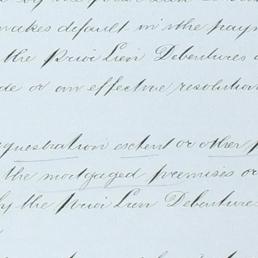 makes default in the paym
the Prior Lien Debentures
de or an effective resolution
questration extent or other p
the mortgaged premises or
by the Prior Lien Debenture